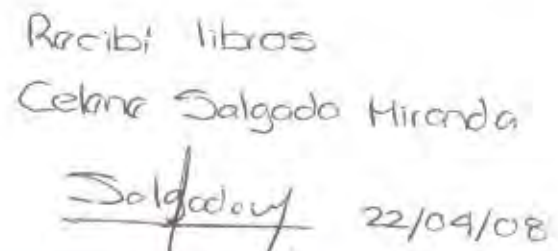 Recibí libros
Celene Salgado Miranda
Salgado 22/04/08